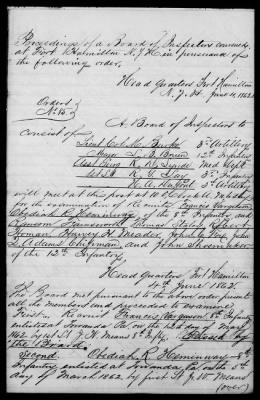 Proceedings of a Board of Inspectors convened
at Fort Hamilton N.Y.H. in pursuance of
the following order.
Head Quarters Fort Hamilton
N.Y.H. June 4, 1862.
Orders
No. 15.
A Board of Inspectors to
consist of
Lieut Col. M. Burke 3d Artillery
12th Infantry
Asst Surg
1st Lt R. G. Lay 3d Infantry
3d Artillery
will meet at this post at 12 o'clock M. to day
for the examination of Recruits, Francis Ferguson
Obediah R. Hemenway of the 8th Infantry and
Ransom Farnsworth, Thomas Staley, Robert
Harvey H. Meader, John
Adams Chipman, and John Shoemaker
of the 12th Infantry.
Head Quarters, Fort Hamilton
4th June 1862.
The Board met pursuant to the above order, present
all the Members and proceeded to examine
First. Recruit Francis Ferguson 8th Infantry
enlisted at Towanda Pa. on the 12th day of May
1862 by 1st Lt J. W. Means 8th Infy. Passed by
the Board.
Second. Obediah R. Hemenway 8th
Infantry, enlisted at Towanda, Pa. on the 5th
day of March 1862 by first Lt J. W. Means
(over)